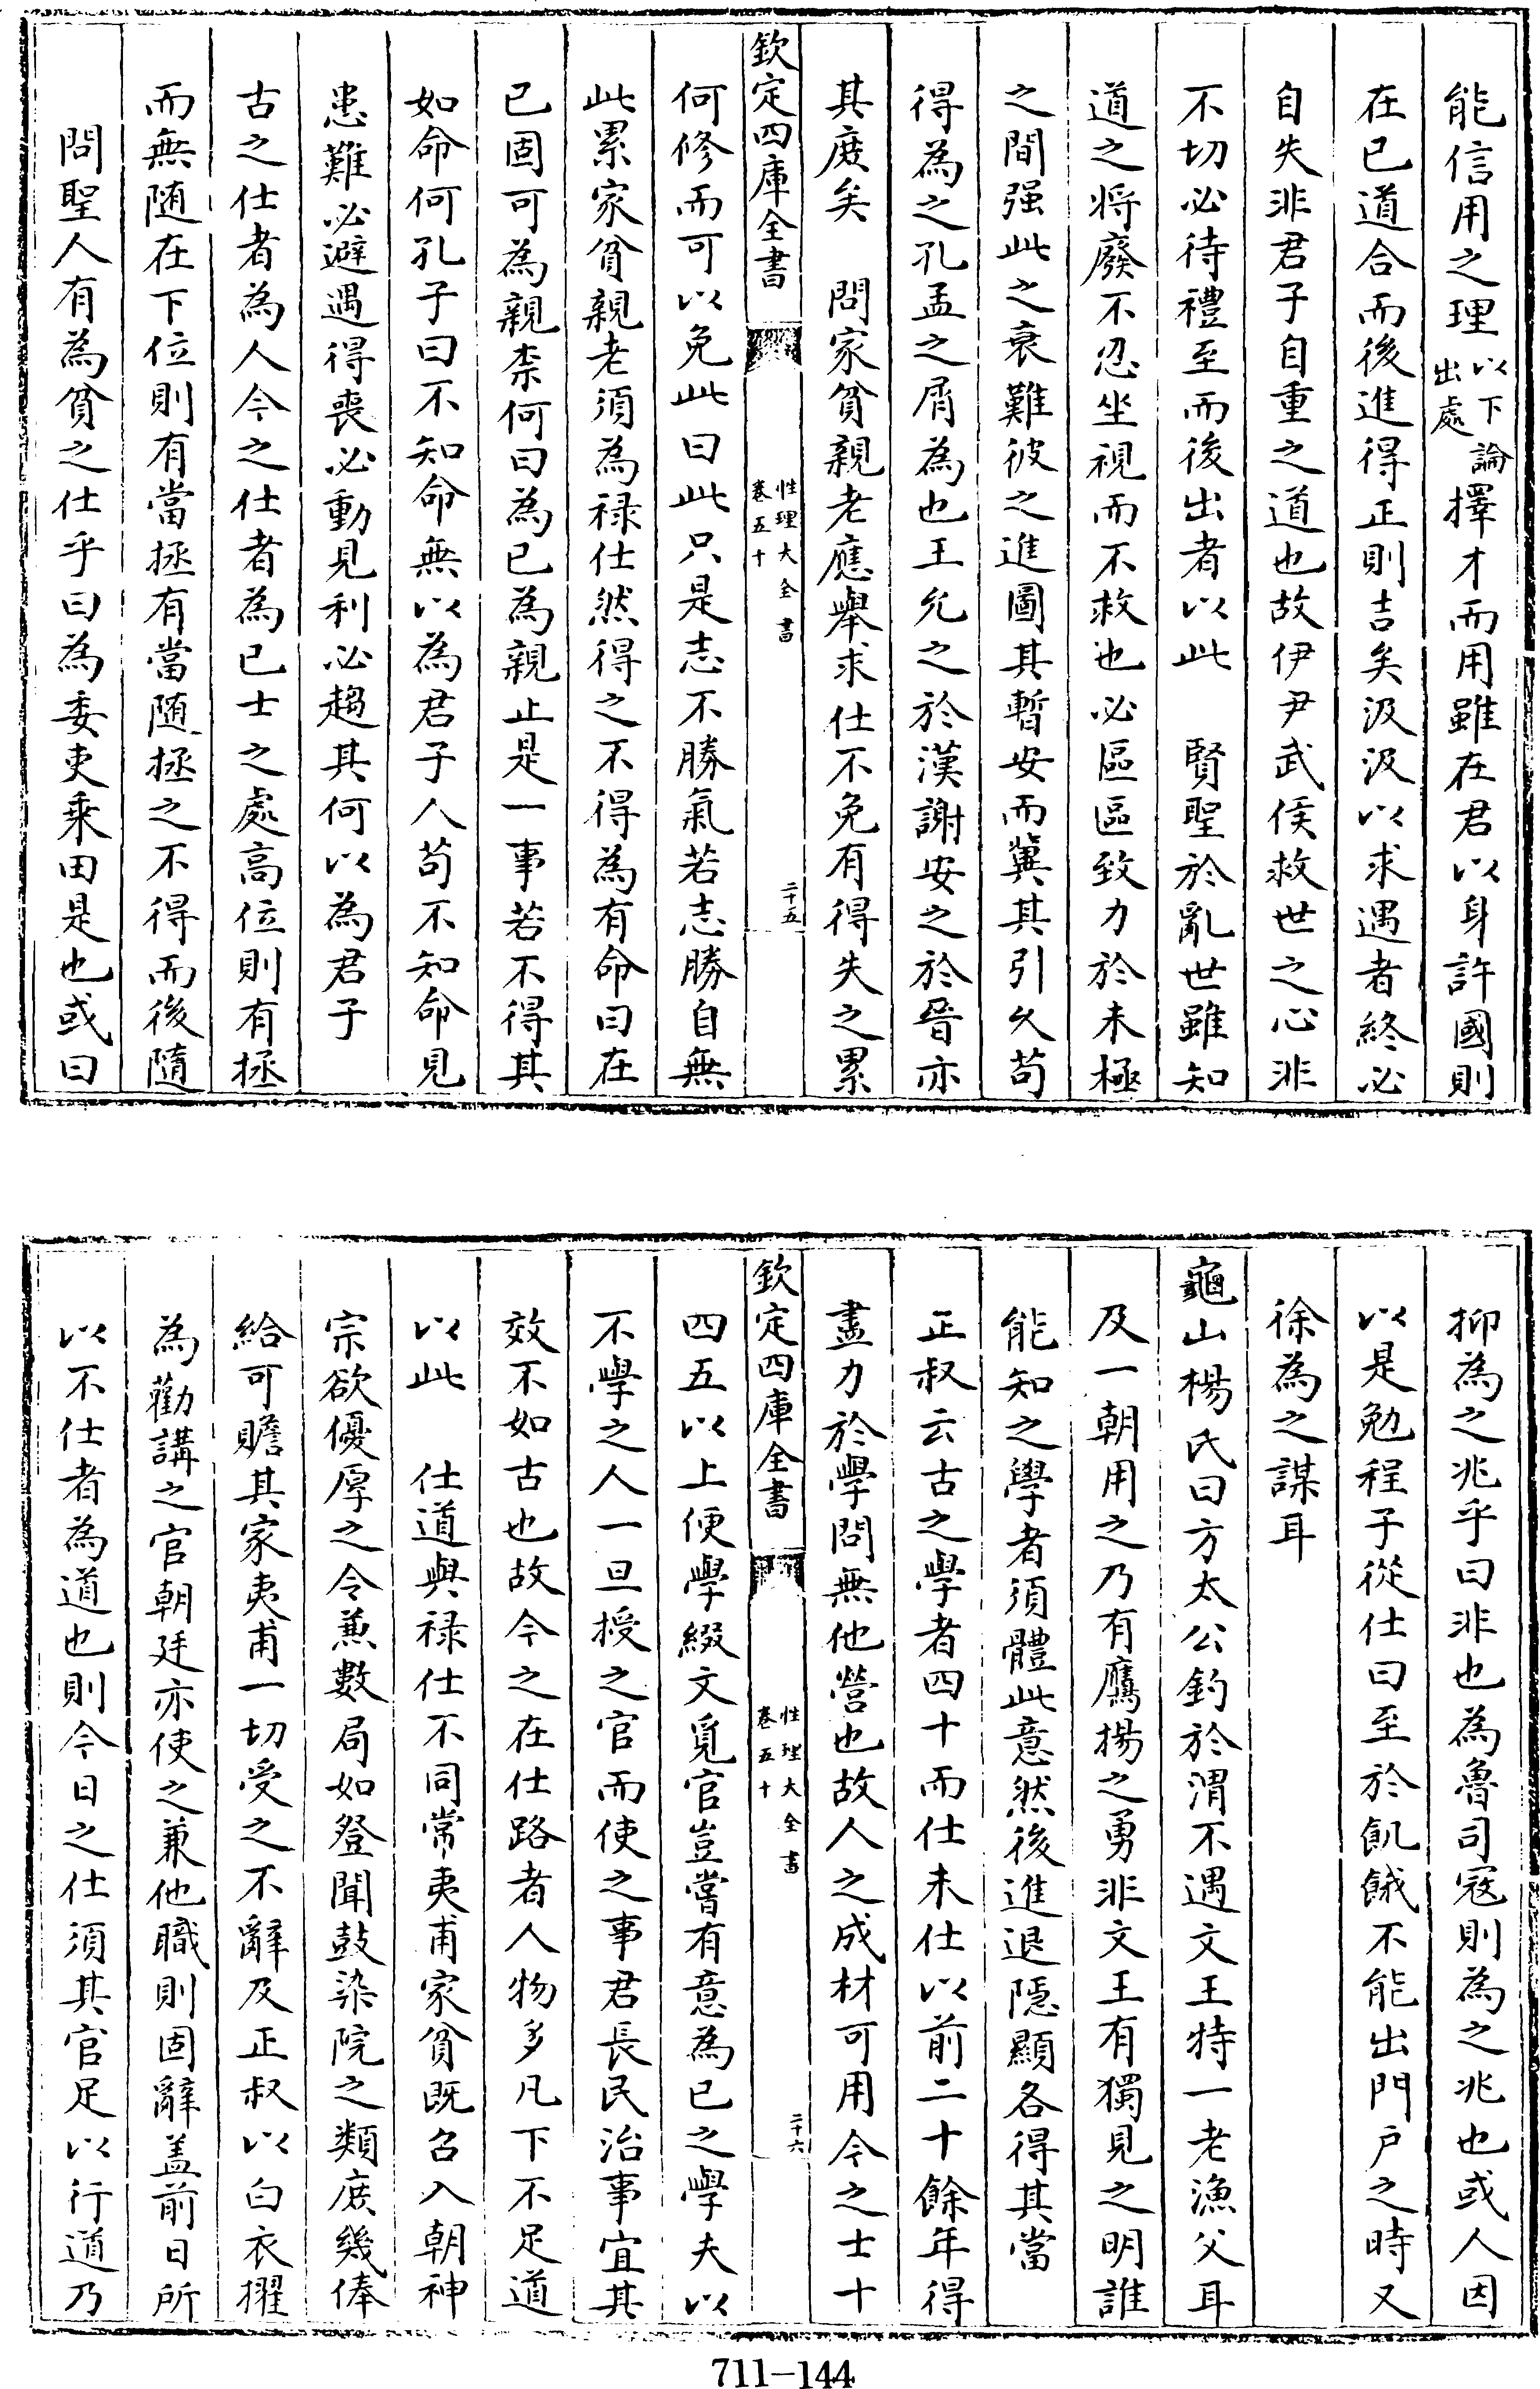 能信用之理以下論出處擇才而用雖在君以身許國則
在已道合而後進得正則吉矣汲汲以求遇者終必
自失非君子自重之道也故伊尹武侯救世之心非
不切必待禮至而後出者以此　賢聖於亂世雖知
道之將廢不忍坐視而不救也必區區致力於未極
之間强此之衰難彼之進圖其暫安而冀其引久苟
得為之孔孟之屑為也王允之於漢謝安之於晉亦
其庶矣　問家貧親老應舉求仕不免有得失之累
欽定四庫全書　性理大全書卷五十　二十五
何修而可以免此曰此只是志不勝氣若志勝自無
此累家貧親老須為祿仕然得之不得為有命曰在
已固可為親柰何曰為已為親止是一事若不得其
如命何孔子曰不知命無以為君子人苟不知命見
患難必避遇得喪必動見利必趨其何以為君子
古之仕者為人今之仕者為已士之處高位則有拯
而無随在下位則有當拯有當随拯之不得而後隨
問聖人有為貧之仕乎曰為委吏乘田是也或曰
抑為之兆乎曰非也為魯司寇則為之兆也或人因
以是勉程子從仕曰至於飢餓不能出門戶之時又
徐為之謀耳
龜山楊氏曰方太公釣於渭不遇文王特一老漁父耳
及一朝用之乃有鷹揚之勇非文王有獨見之明誰
能知之學者須體此意然後進退隱顯各得其當
正叔云古之學者四十而仕未仕以前二十餘年得
盡力於學問無他營也故人之成材可用今之士十
欽定四庫全書　性理大全書卷五十　二十六
四五以上便學綴文覓官豈嘗有意為已之學夫以
不學之人一旦授之官而使之事君長民治事宜其
效不如古也故今之在仕路者人物多凡下不足道
以此　仕道與祿仕不同常夷甫家貧既召入朝神
宗欲優厚之令兼數局如登聞鼓染院之類庶幾俸
給可贍其家夷甫一切受之不辭及正叔以白衣擢
為勸講之官朝廷亦使之兼他職則固辭盖前日所
以不仕者為道也則今日之仕須其官足以行道乃
711-144